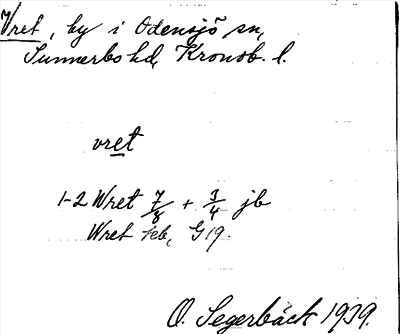 Vret, by i Odensjö sn,
Sunnerbo hd, Kronob. l.
vret
1-2 Wret 7/8 + 3/4 jb
Wret Feb, G19.
O. Segerbäck 1919.